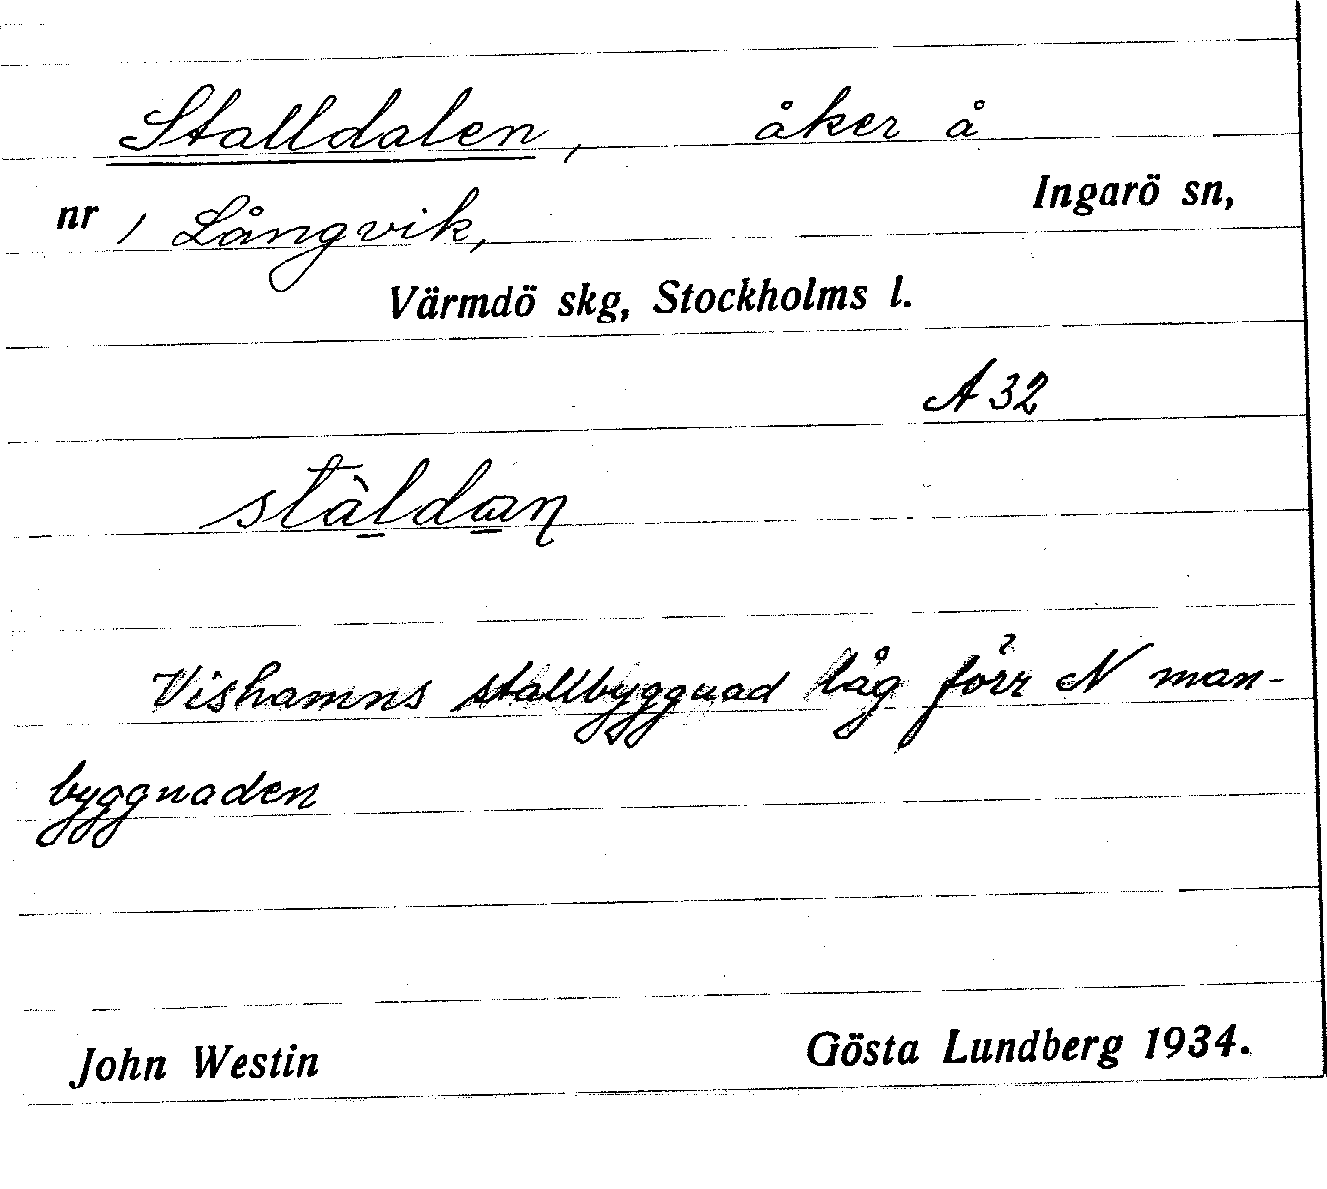 Stalldalen, åker å
nr 1 Långvik, Ingarö sn,
Värmdö skg, Stockholms l.
A 32
stàldan
Vishamns stallbyggnad låg förr N man-
byggnaden
John Westin Gösta Lundberg 1934.